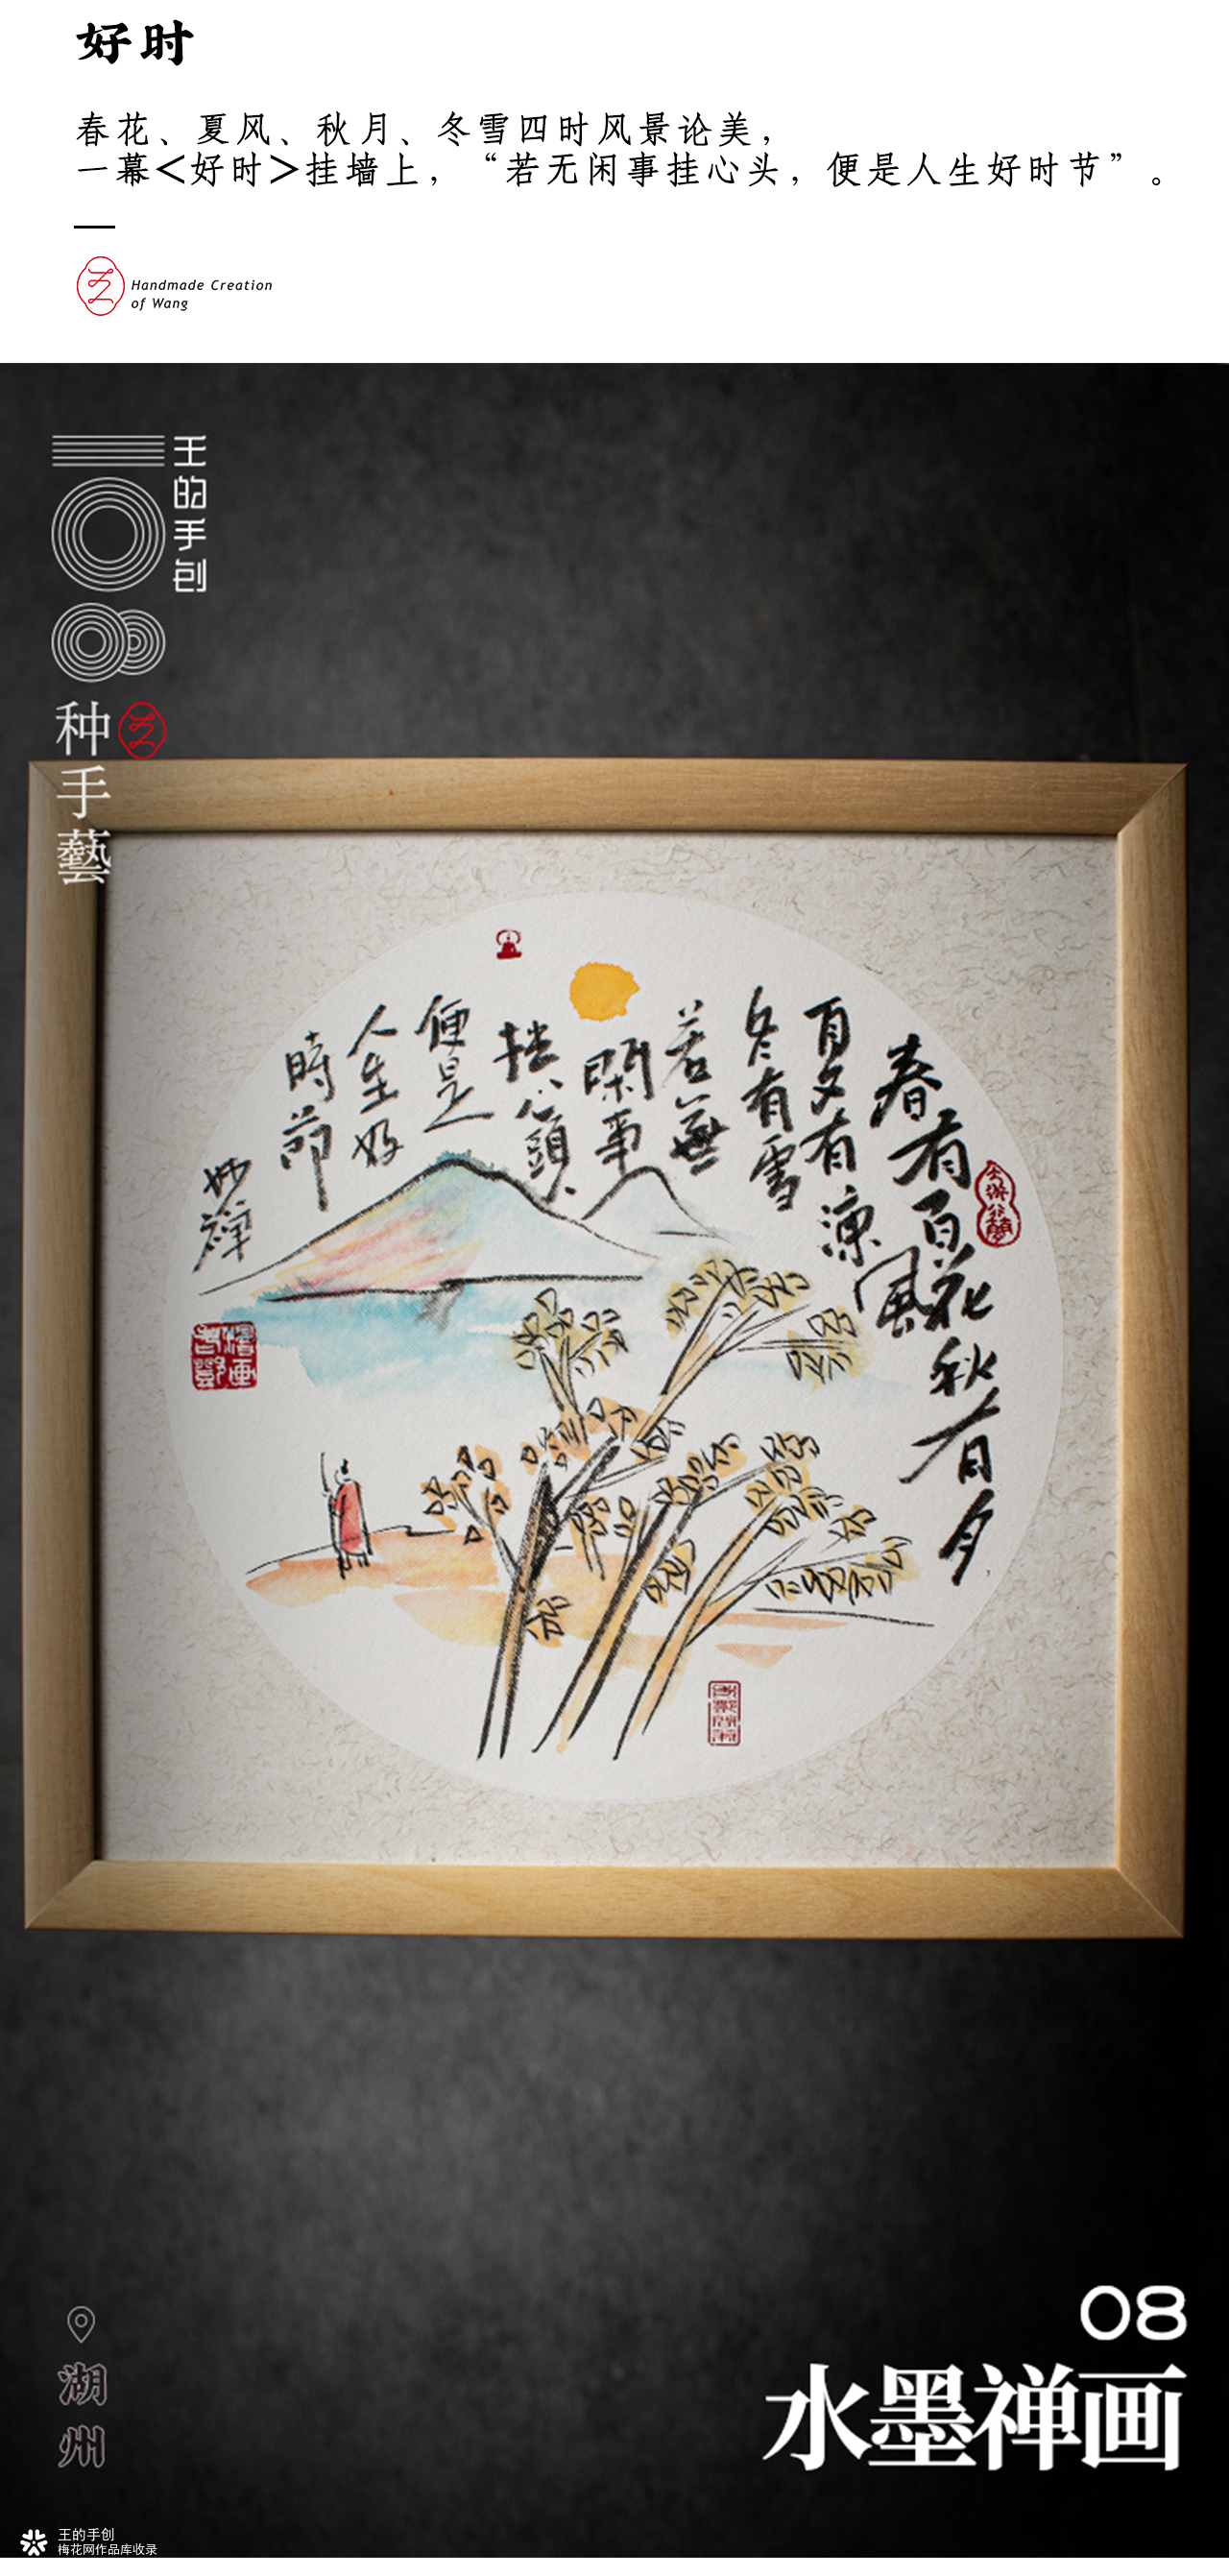 好时
春花、夏风、秋月、冬雪四时风景论美，
一幕<好时>挂墙上，“若无闲事挂心头，便是人生好时节”。
Handmade Creation
of Wang
王的手创
种手藝
春有百花秋有月
夏有涼風
冬有雪
若無
閑事
挂心頭
便是
人生好
時節
妙禪
08
水墨禅画
湖州
王的手创
梅花网作品库收录